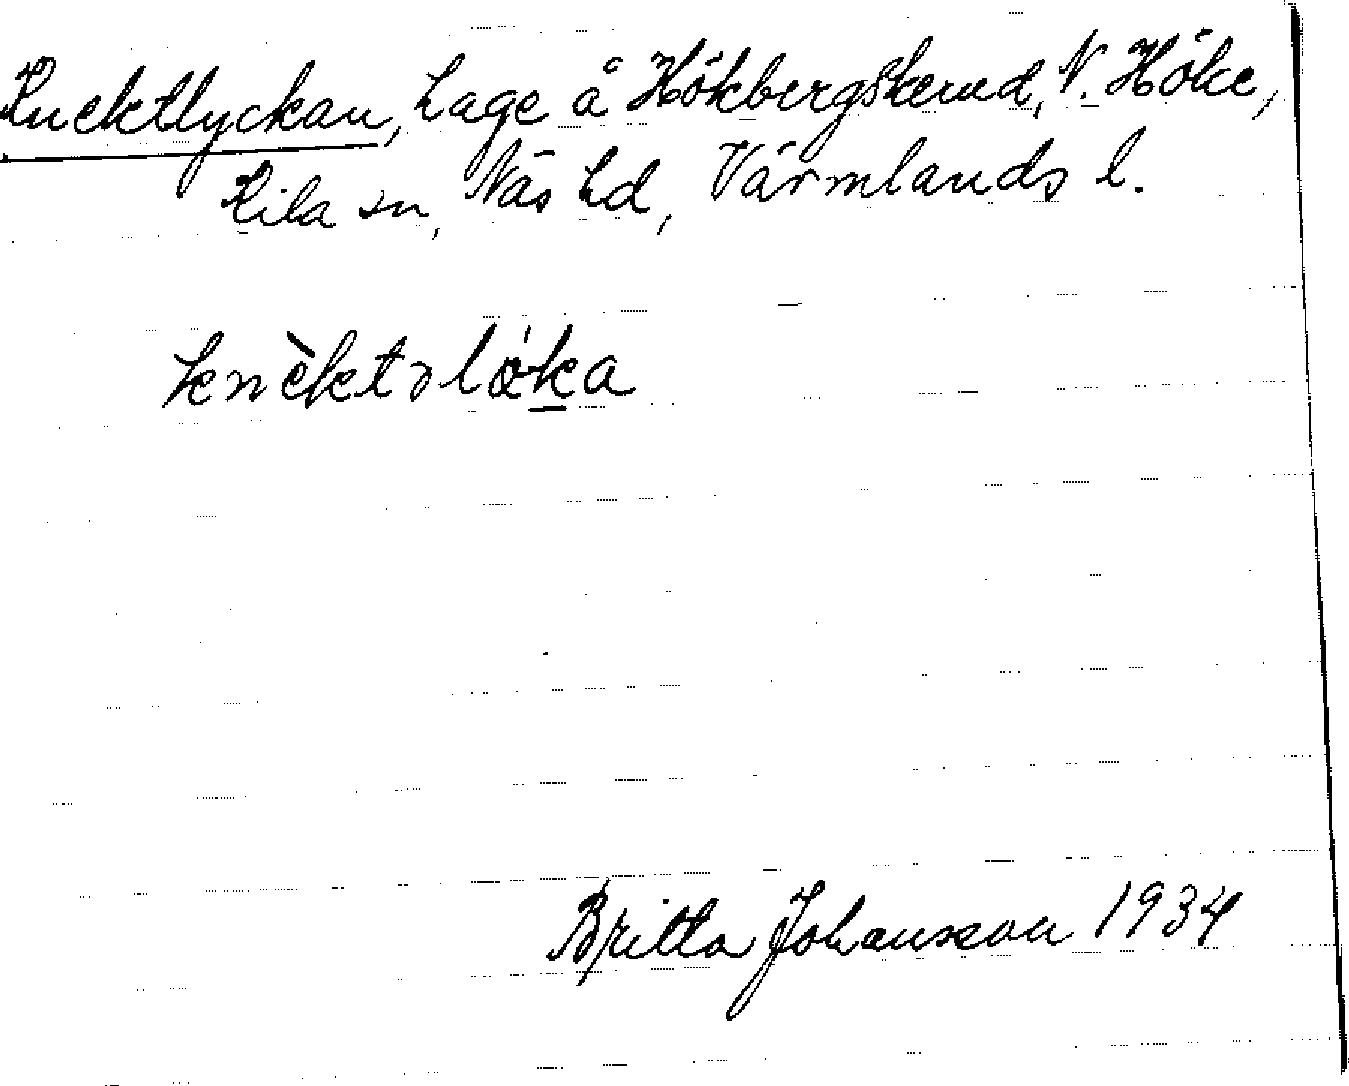 Knektlyckan, hage å Hökbergskerud, N. Höke,
Kila sn, Näs hd, Värmlands l.
knèktəlø̀ka
Britta Johansson 1934